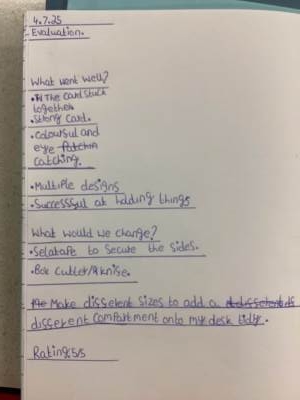 4.7.25
Evaluation.
What went well?
• The card stuck
together.
• Strong card.
• Colourful and
eye
catching.
• Multiple designs
• Successful at holding things
What would we change?
• Selatape to secure the sides.
• Box cutter/knife.
Make different sizes to add a
different compartment onto my desk tidy.
Rating:5/5